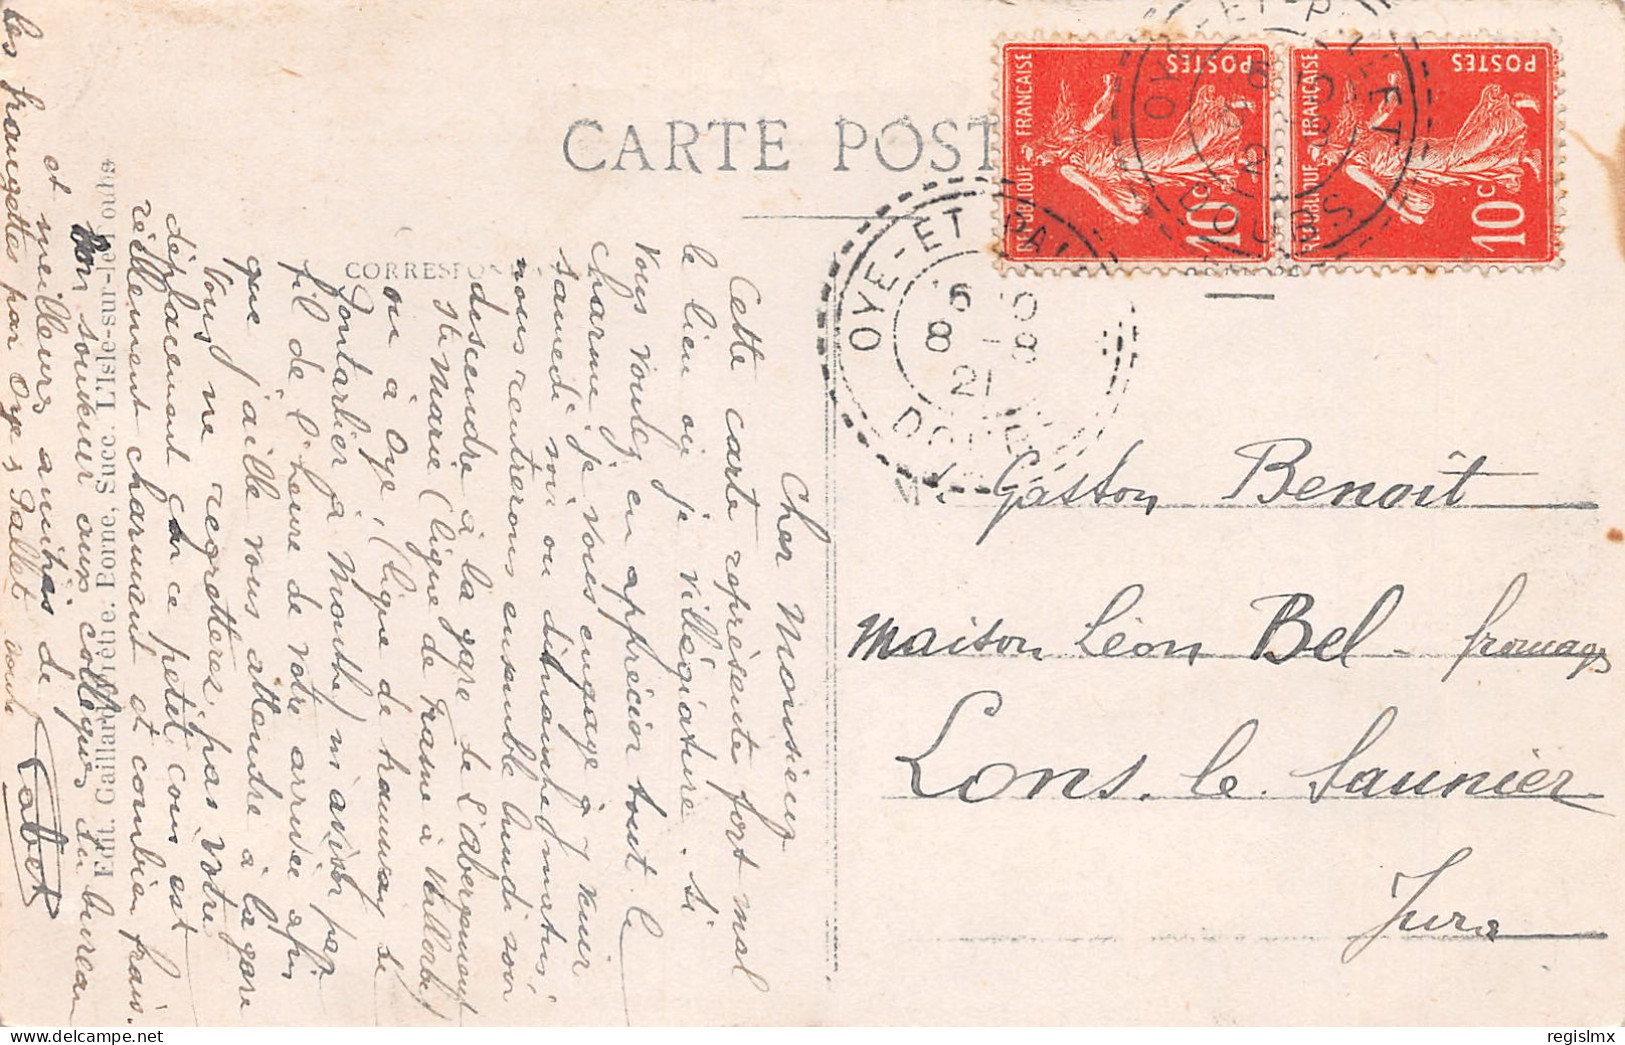 CARTE POST
CORRESPON
RÉPUBLIQUE FRANÇAISE
POSTES
10c
RÉPUBLIQUE FRANÇAISE
POSTES
10c
OYE-ET-PALLET
DOUBS
OYE-ET-PAL
15 10
8 - 8
21
DOUBS
Gaston Benoit
Maison Léon Bel - fromages
Lons. le. Saunier
Jura
Cher Monsieur
Cette carte représente fort mal
le lieu où je villégiature. Si
vous voulez en apprécier tout le
charme je vous engage à venir
samedi soir ou dimanche matin,
nous rentrerons ensemble lundi soir
descendre à la gare de Labergement
Ste Marie (ligne de Frasne à Vallorbe)
ou à Oye, (ligne de tramway de
Pontarlier à Mouthe) m'aviser par
fil de l'heure de votre arrivée afin
que j'aille vous attendre à la gare
Vous ne regretterez pas votre
déplacement car ce petit coin est
réellement charmant et combien frais.
Bon souvenir aux collègues du bureau
et meilleures amitiés de
Cabet
les frangettes par Oye & Pallet
Edit. Gaillard-Prêtre. Borne, Succ. L'Isle-sur-le-Doubs
regislmx